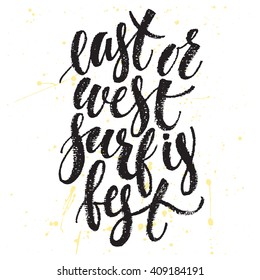 east or
west
surf is
best
shutterstock.com · 409184191